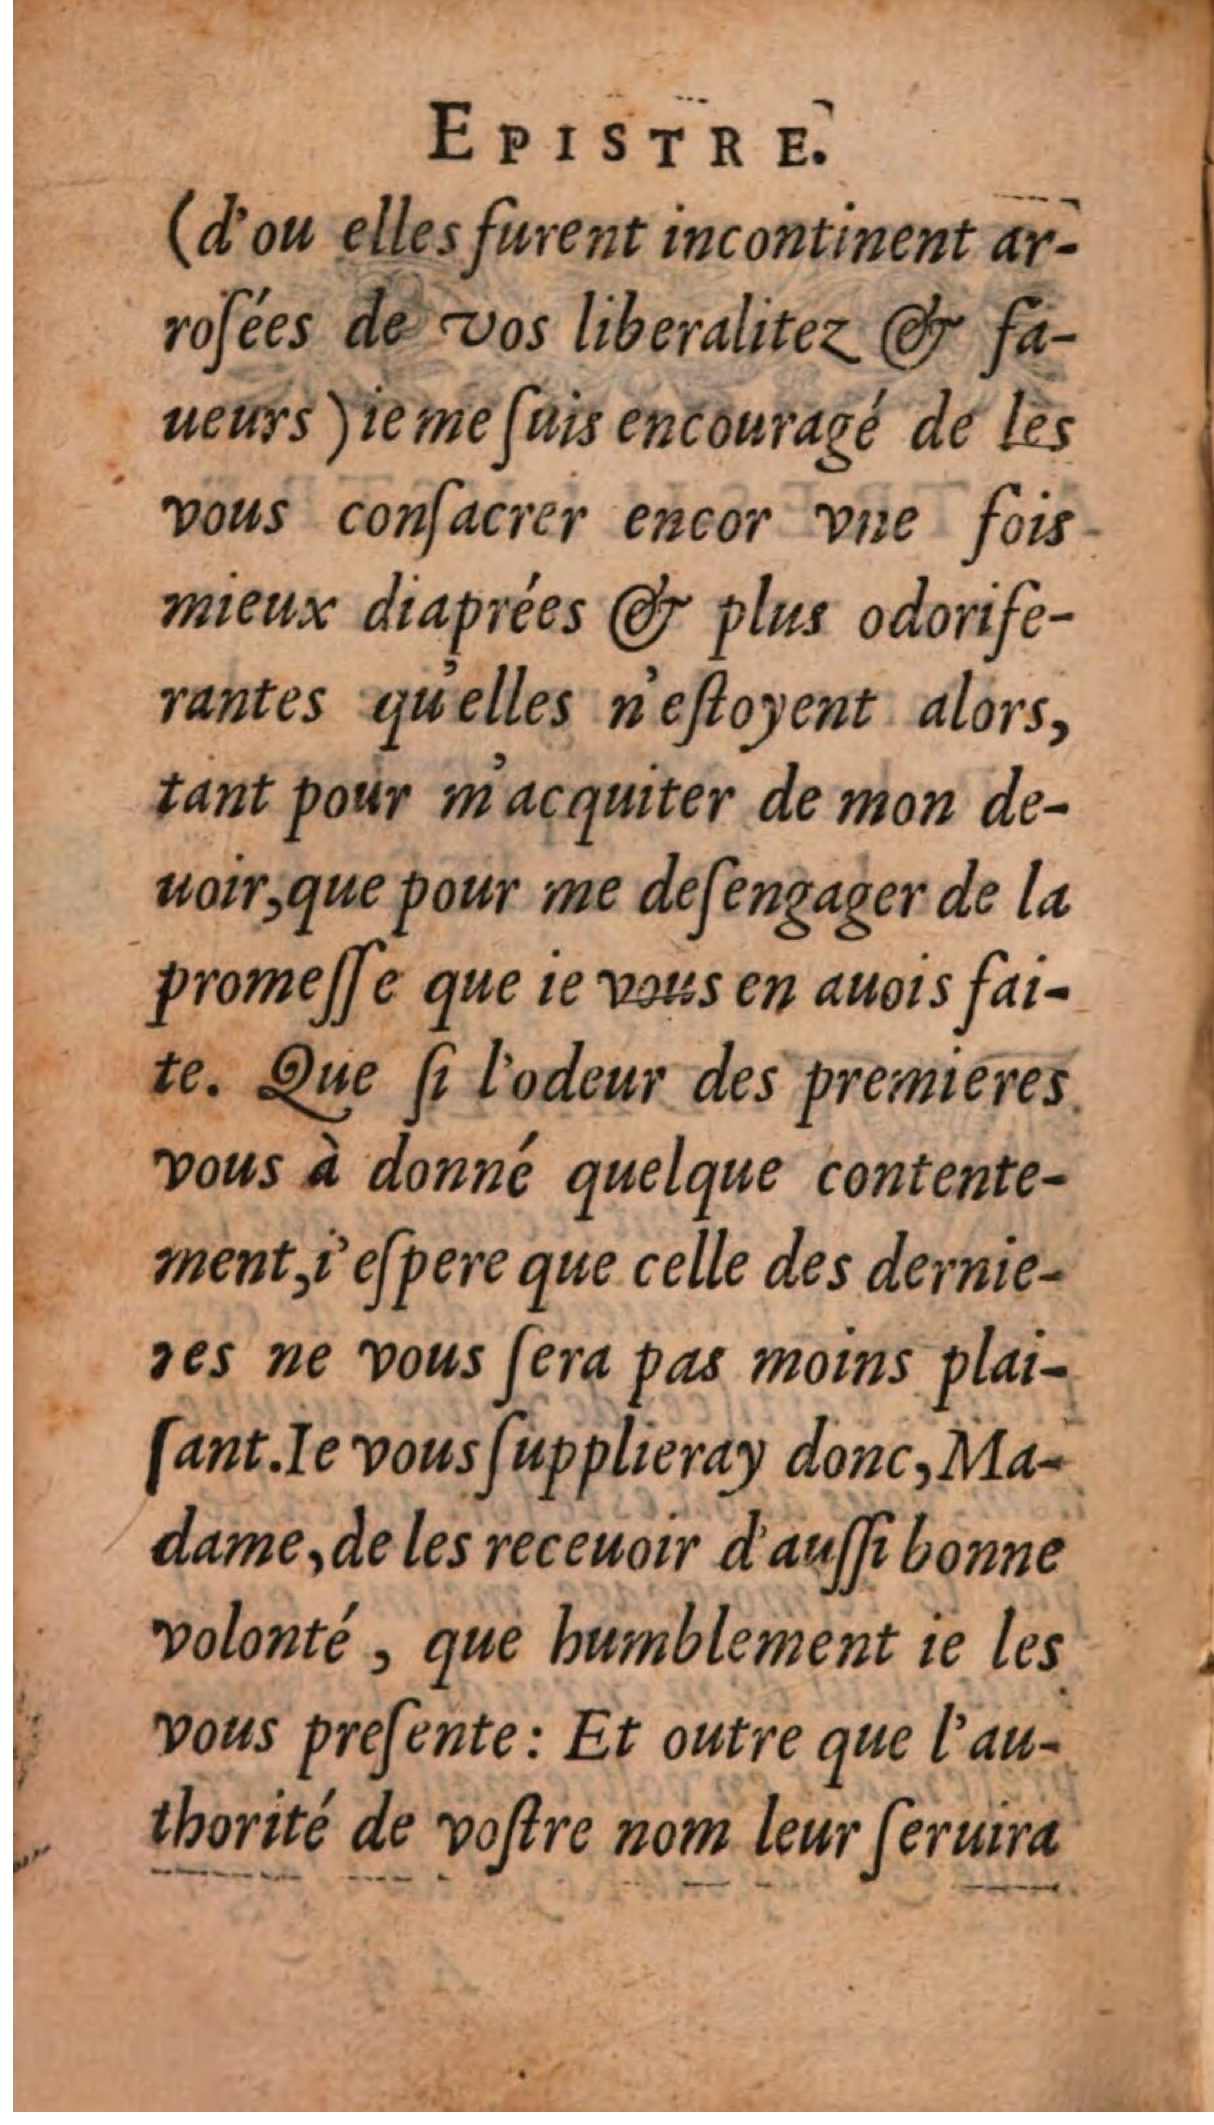 EPISTRE.
(d'ou elles furent incontinent ar-
roſées de vos liberalitez & fa-
ueurs) ie me ſuis encouragé de les
vous conſacrer encor vne fois
mieux diaprées & plus odorife-
rantes qu'elles n'eſtoyent alors,
tant pour m'acquiter de mon de-
uoir, que pour me deſengager de la
promeſſe que ie vous en auois fai-
te. Que ſi l'odeur des premieres
vous à donné quelque contente-
ment, i'eſpere que celle des dernie-
res ne vous ſera pas moins plai-
ſant. Ie vous ſupplieray donc, Ma-
dame, de les receuoir d'auſſi bonne
volonté, que humblement ie les
vous preſente: Et outre que l'au-
thorité de voſtre nom leur ſeruira